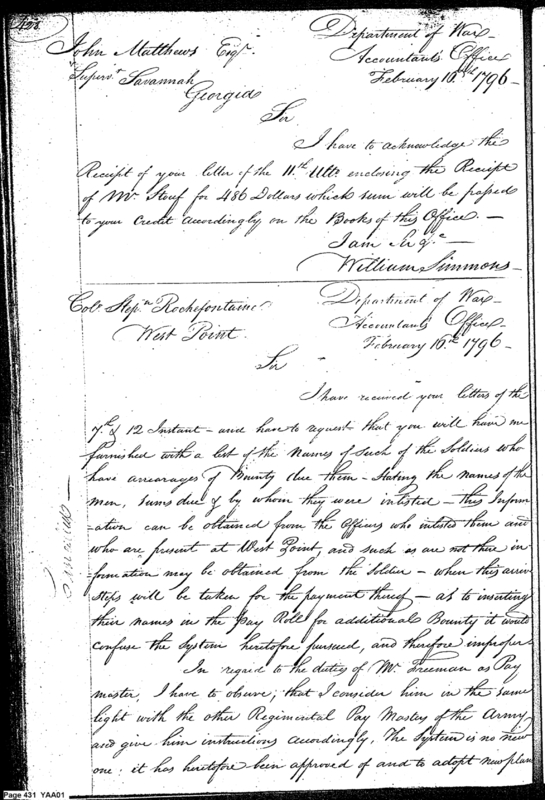 428
John Matthews Esqr.
Superv.r Savannah
Georgia
Department of War
Accountants Office
February 16.th 1796
Sir
I have to acknowledge the
Receipt of your letter of the 11.th Ulto enclosing the Receipt
of Mr. Stouf for 486 Dollars which sum will be passed
to your Credit accordingly on the Books of this Office. —
I am Sir &c —
William Simmons
Colo. Stepn Rochefontaine
West Point.
Department of War
Accountants Office
February 16.th 1796
Sir
I have received your letters of the
7.th & 12 Instant – and have to request that you will have me
furnished with a list of the Names of such of the Soldiers who
have arrearages of Bounty due them – Stating the names of the
men, sums due & by whom they were inlisted – this Inform
ation can be obtained from the Officers who inlisted them and
who are present at West Point, and such as are not there in-
formation may be obtained from the Soldier – when this arriv
steps will be taken for the payment thereof – as to inserting
their names in the Pay Roll for additional Bounty it would
confuse the System heretofore pursued, and therefore improper
In regard to the duties of Mr. Freeman as Pay
master, I have to observe; that I consider him in the same
light with the other Regimental Pay Masters of the Army
and give him instructions accordingly. The System is no new
one: it has heretofore been approved of and to adopt new plan
Page 431 YAA01